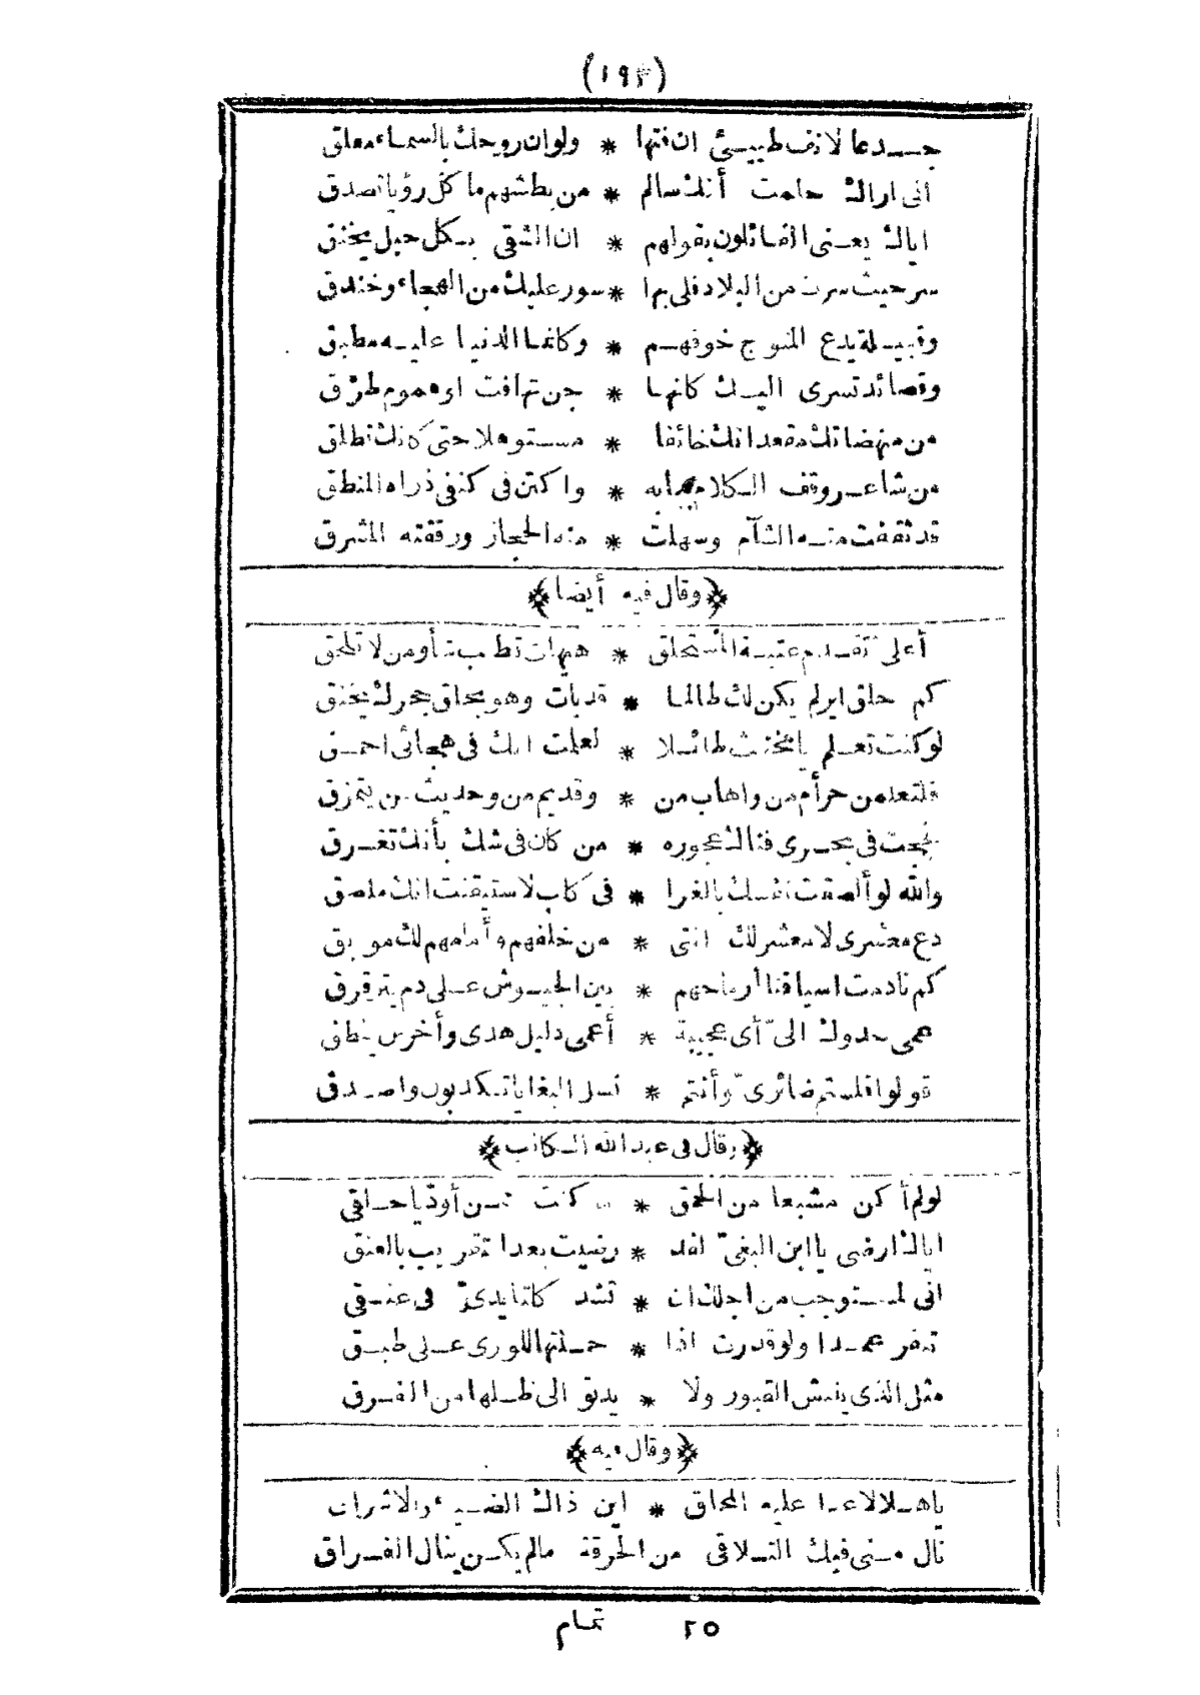 (١٩٣)
جـــدعا لانف طيـئ ان فتها * ولوان روحك بالسماء معلق
انى اراك حلمت أنك سالم * من بطشهم ما كل رؤيا تصدق
اياك يعـنى القائلون بقولهم * ان الشقى بـكل حبل يخنق
سر حيث سرت من البلاد فلى بها * سور عليك من الهجاء وخندق
وقبيـلة يدع المتوج خوفهـم * وكانما الدنيا عليـه مطبق
وقصائد تسرى اليـك كانها * جن تهافت او هموم طرّق
من منهضاتك مقعداتك خائفا * مستوهلا حتى كانك تطلق
من شاعـر وقف الـكلام ببابه * واكتن فى كنفى ذراه المنطق
قد ثقفت منـه الشآم وسهلت * منه الحجاز ورققته المشرق
﴿وقال فيه أيضا﴾
أعلى تقـدم عتبـة المستحلق * هيهات تطلب شأو من لا تلحق
كم حلق اير لم يكن لك طالما * قد بات وهو بحلق جحرك يخنق
لو كنت تعـلم يا مخنث طائـلا * لعلمت انك فى هجائى احمـق
فلتعلمن حرأم من واهاب من * وقديم من وحديث من يتمزق
لججت فى بحـرى فنالك بحوره * من كان فى شك بأنك تغـرق
والله لو ألصقت نفسك بالغرا * فى كلب لاستيقنت انك ملصق
دع معشرى لا معشر لك انى * من خلفهم وأمامهم لك موبق
كم نادمت اسيافنا أرماحهم * بين الجيـوش عـلى دم يترقرق
عمى حدوك الىّ أى عجيبة * أعمى دليل هدى وأخرس ينطق
قولوا فلستم ضائرىّ وأنتم * نسل البغايا تـكذبون واصـدق
﴿وقال فى عبد الله الـكاتب﴾
لو لم أكن مشبعا من الحمق * ما كنت ممـن أودّ يا حـلقى
اياك ارضى يا ابن البغىّ لقد * رضيت بعد التقريب بالعنق
انى لمسـتوجب من اجلك ان * تشد كلتا يدىّ فى عنـقى
تنفر عمـدا ولو قدرت اذا * حمـلتها للورى عـلى طبـق
مثل الذى ينبش القبور ولا * يدنو الى ظـلها من الفـرق
﴿وقال فيه﴾
يا هـلالا عدا عليه المحاق * اين ذاك الضـياء والاشراق
نال مـنى فيك التـلاقى من الحرقة ما لم يكـن ينال الفـراق
٢٥ تمام